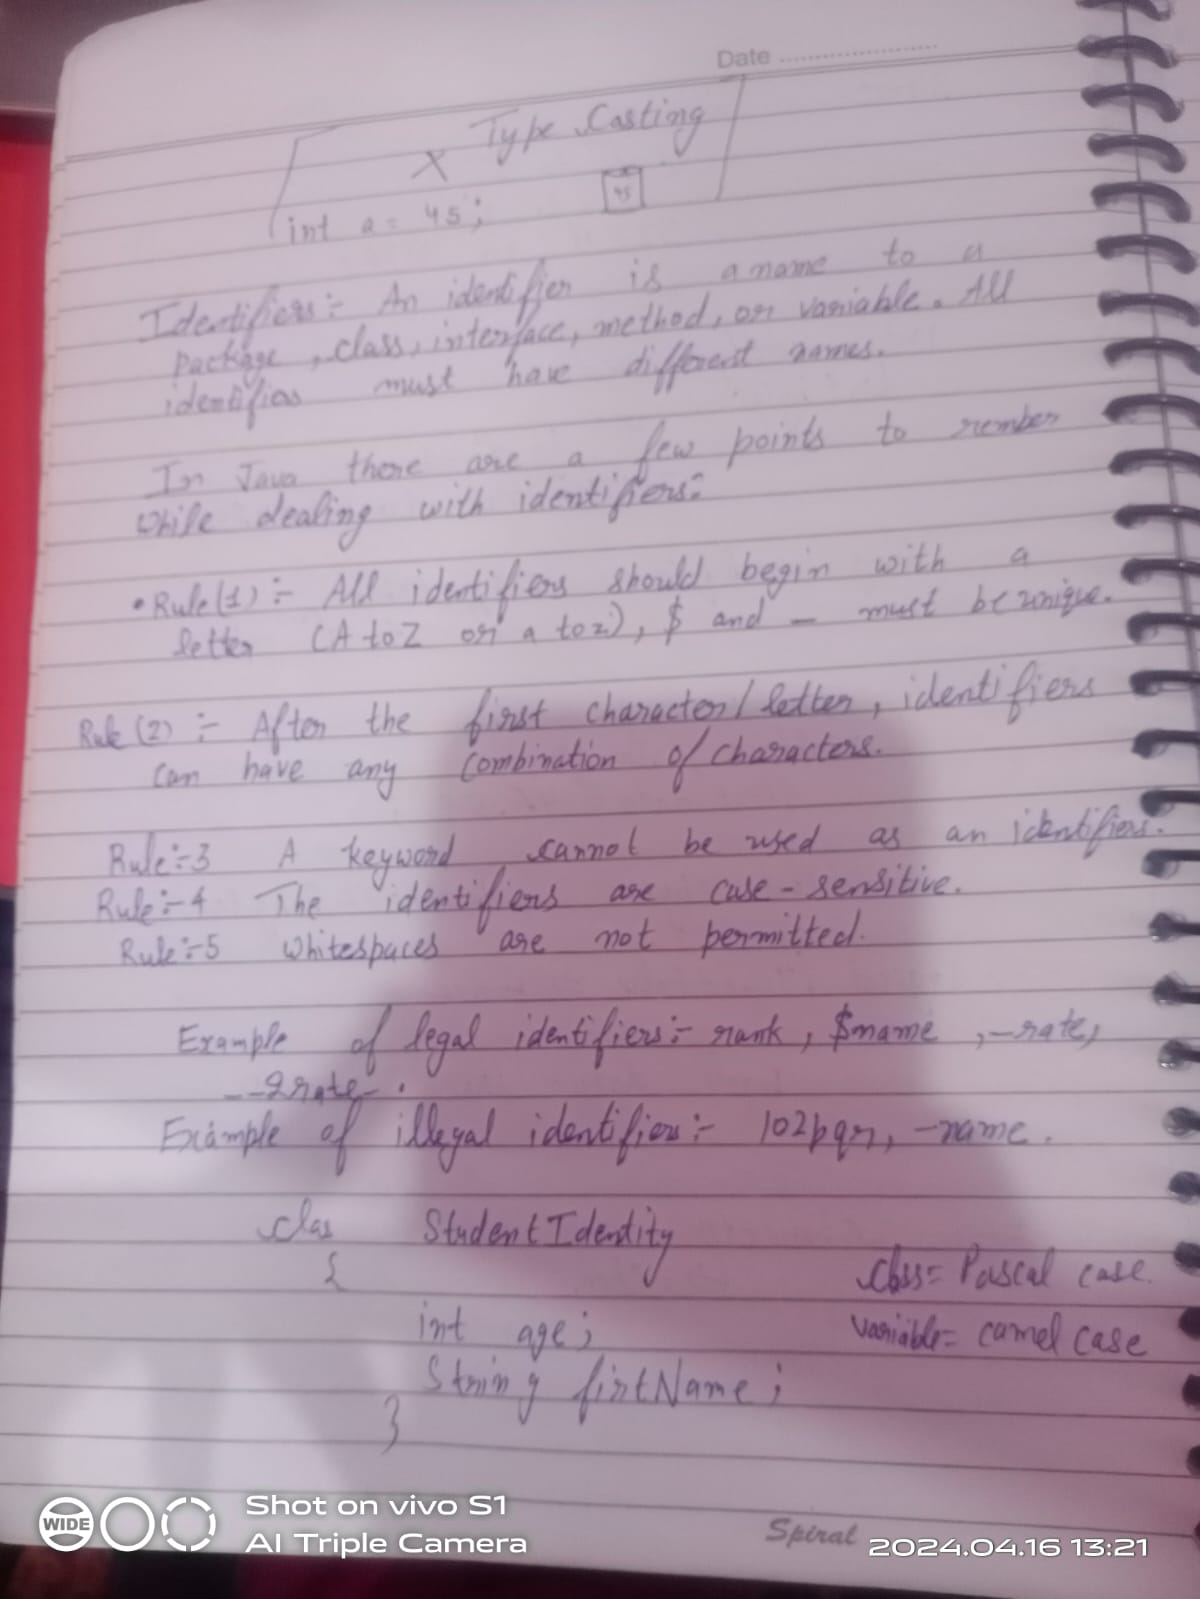 Date
Type Casting
X
int a = 45;
45
Identifiers:- An identifier is a name to a
package, class, interface, method, or variable. All
identifiers must have different names.
In Java there are a few points to rember
while dealing with identifiers:
• Rule(1):- All identifiers should begin with a
letter (A to Z or a to z), $ and _ must be unique.
Rule (2):- After the first character/letter, identifiers
can have any combination of characters.
Rule:-3 A keyword cannot be used as an identifiers.
Rule:-4 The identifiers are case-sensitive.
Rule:-5 whitespaces are not permitted.
Example of legal identifiers:- rank, $name, _rate,
__2rate_.
Example of illegal identifiers:- 102pqr, -name.
clas StudentIdentity
{
class= Pascal case.
int age;
variable= camel case
String firtName;
}
Spiral
WIDE
Shot on vivo S1
AI Triple Camera
2024.04.16 13:21